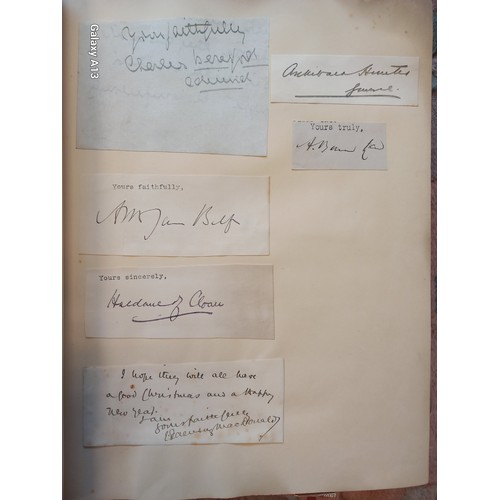 Galaxy A13
Yours faithfully
Charles Beresford
Admiral
Archibald Hunter
General.
Yours truly,
A. Bonar Law
Yours faithfully,
Yours sincerely,
Haldane of Cloan
I hope they will all have
a good Christmas and a Happy
New Year.
I am
Yours faithfully
J Ramsay MacDonald